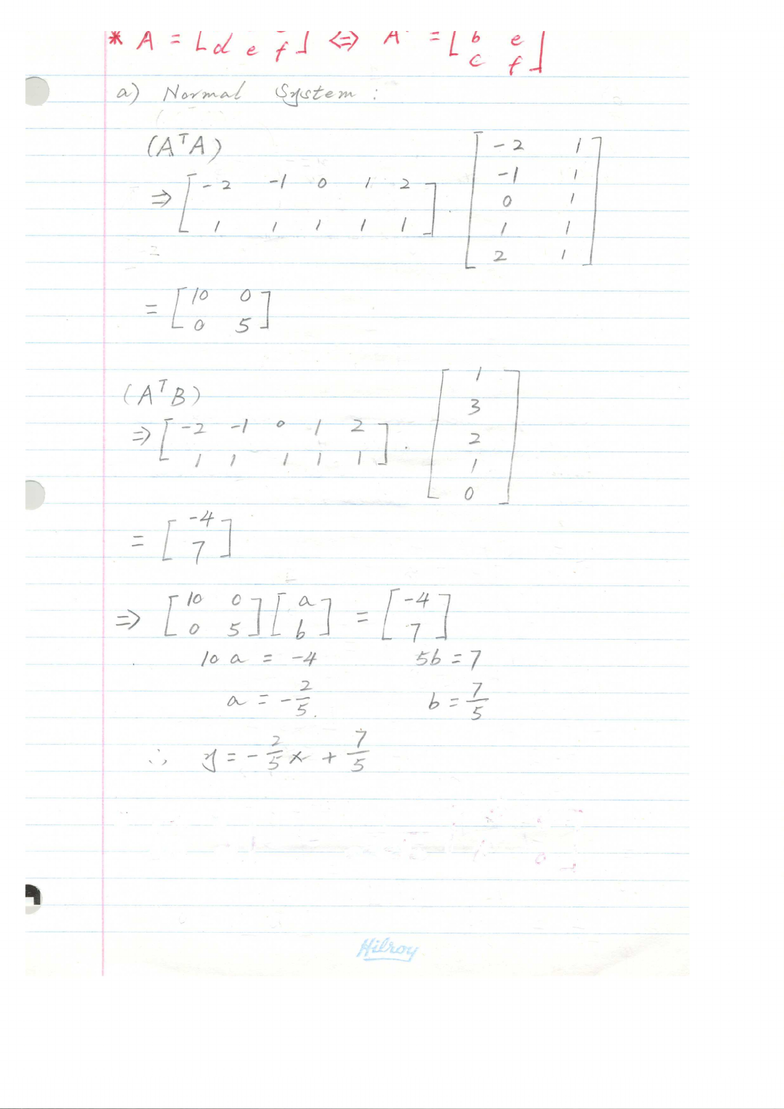 * A = [d e f] <=> A = [b e
c f]
a) Normal System :
(AᵀA)
=> [-2 -1 0 1 2 . [-2 1
1 1 1 1 1] -1 1
0 1
1 1
2 1]
= [10 0
0 5]
(AᵀB)
=> [-2 -1 0 1 2 . [1
1 1 1 1 1] 3
2
1
0]
= [-4
7]
=> [10 0 [a = [-4
0 5] b] 7]
10 a = -4 5b = 7
a = -2/5 b = 7/5
∴ y = -2/5 x + 7/5
Hilroy